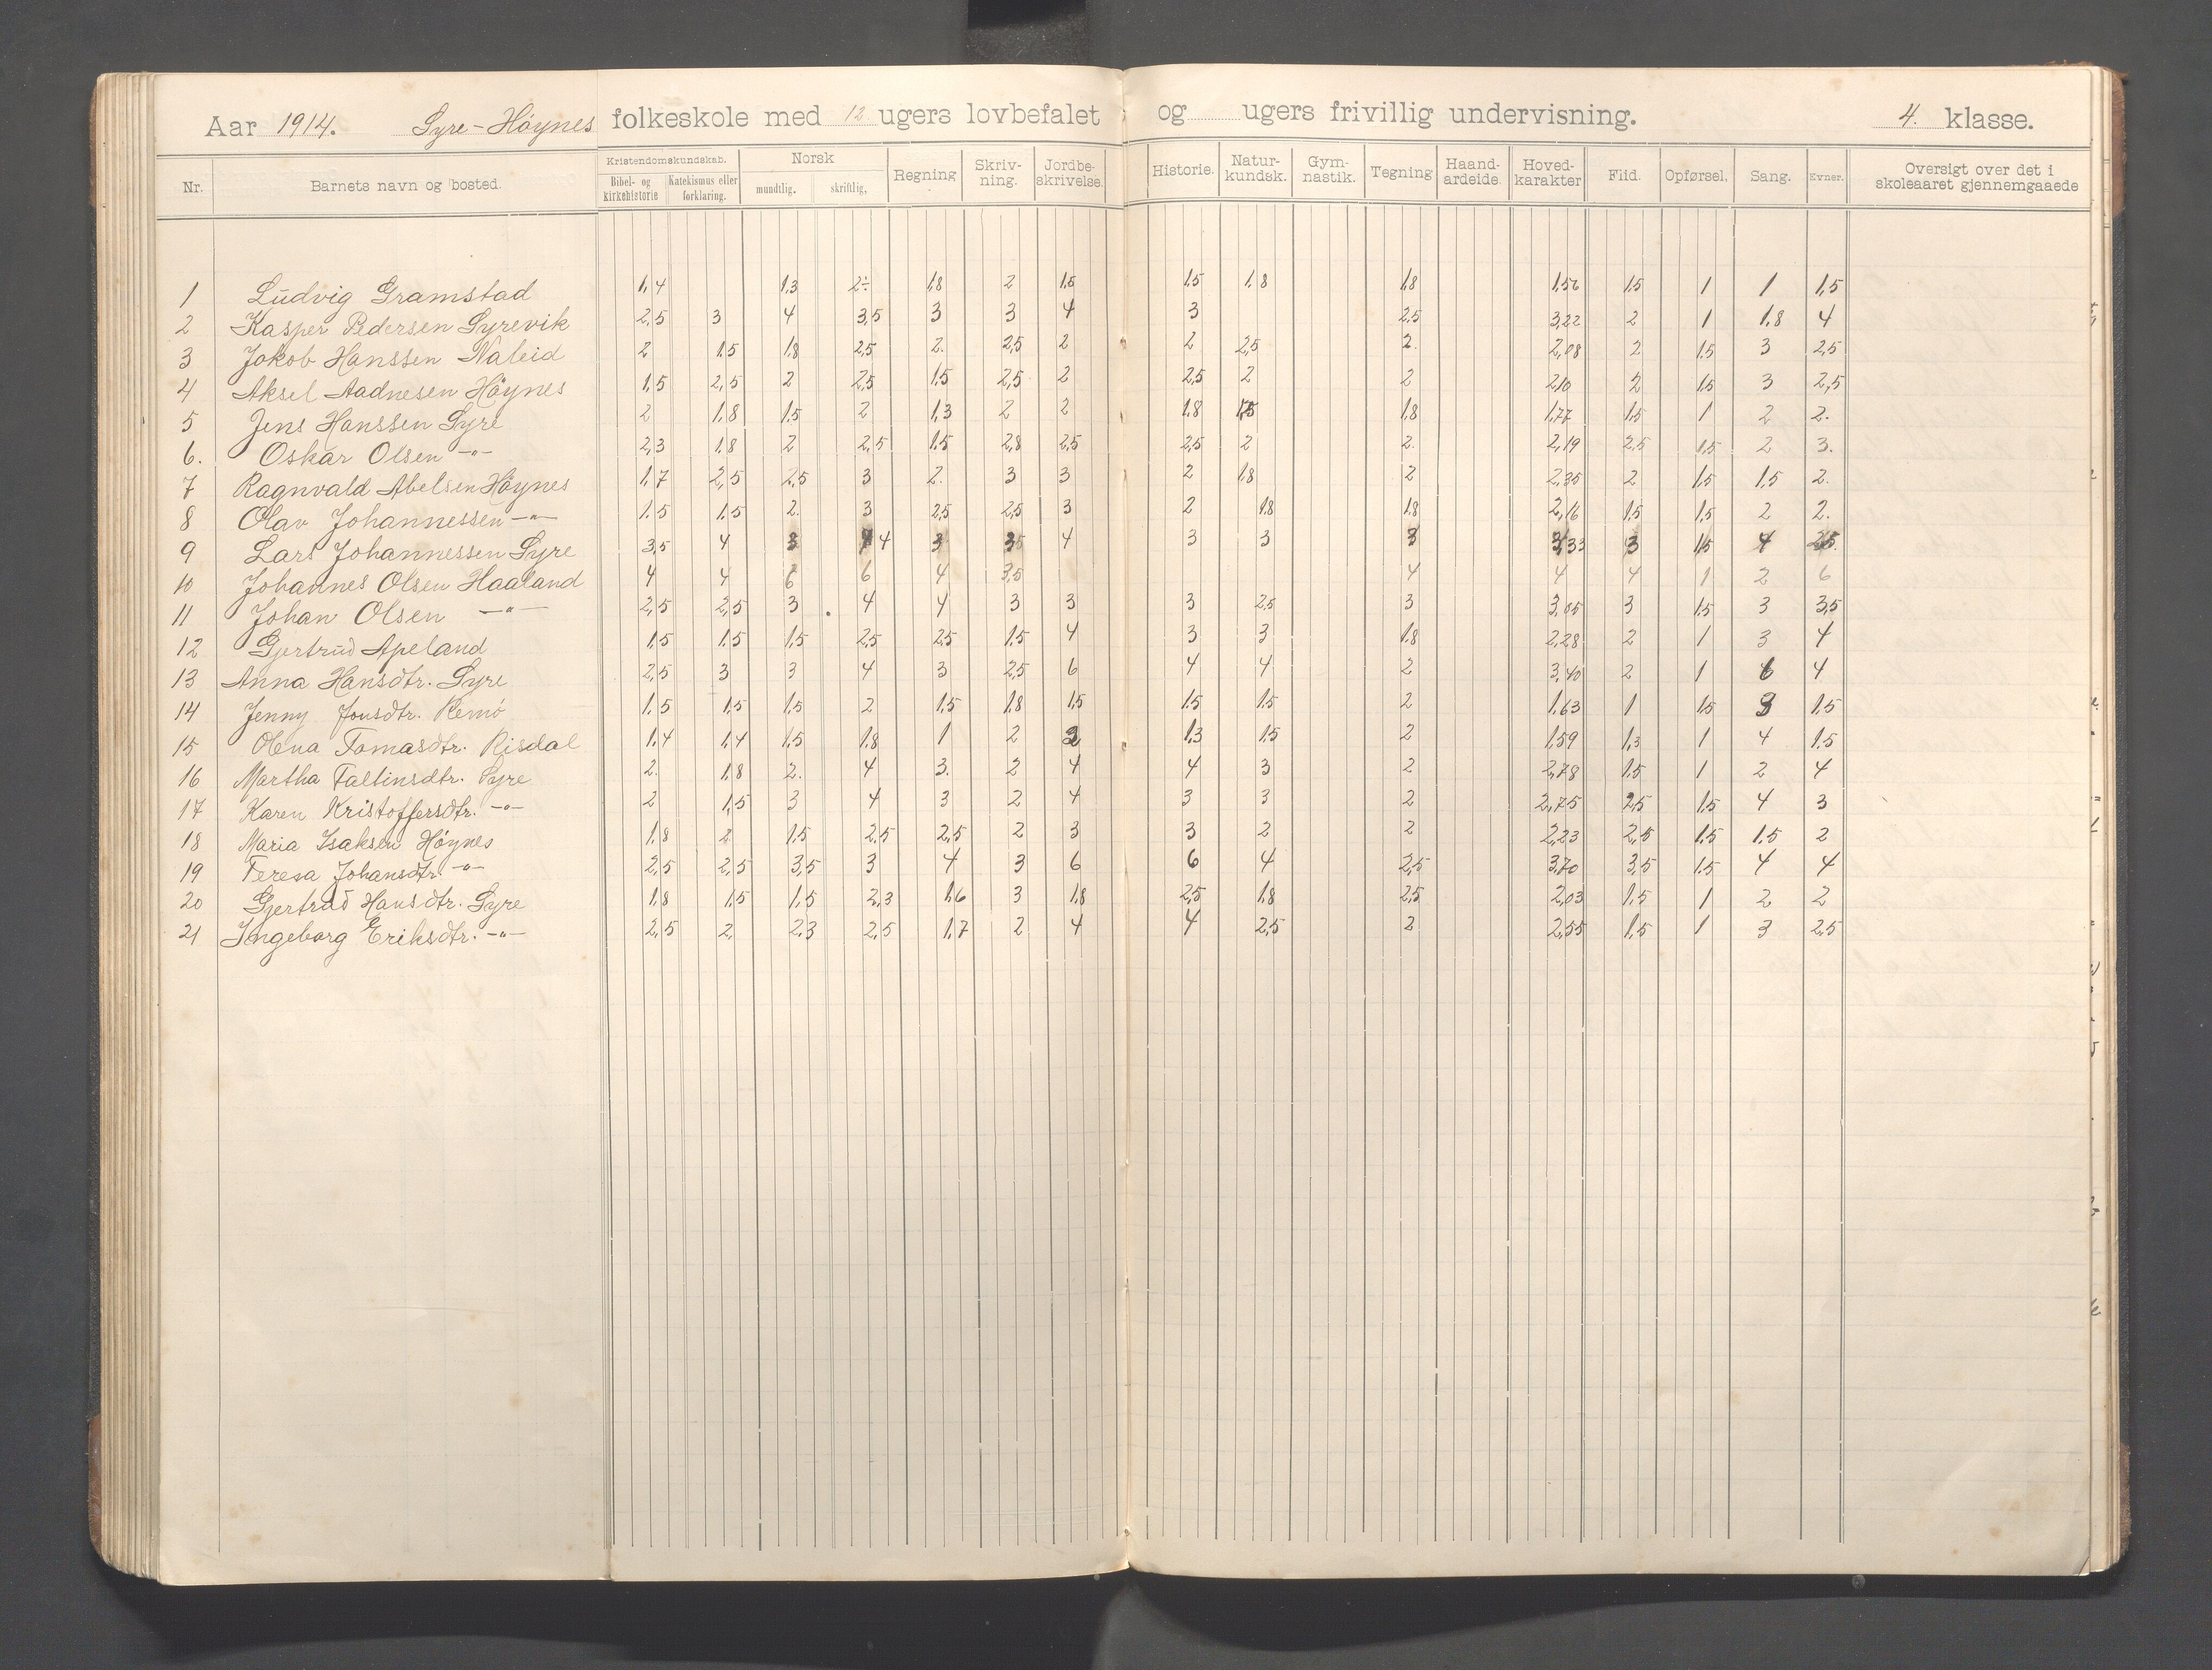 Aar 1914. Syre-Höynes folkeskole med 12 ugers lovbefalet og ugers frivillig undervisning. 4. klasse.
Nr. Barnets navn og bosted. Kristendomskundskab. Bibel- og kirkehistorie Katekismus eller forklaring. Norsk mundtlig. skriftlig, Regning Skriv-ning. Jordbe-skrivelse. Historie. Natur-kundsk. Gym-nastik. Tegning Haand-arbeide. Hoved-karakter Flid. Opførsel. Sang. Evner. Oversigt over det i skoleaaret gjennemgaaede
1 Ludvig Gramstad 1,4 1,3 2÷ 1,8 2 1,5 1,5 1,8 1,8 1,56 1,5 1 1 1,5
2 Kasper Pedersen Syrevik 2,5 3 4 3,5 3 3 4 3 2,5 3,22 2 1 1,8 4
3 Jakob Hanssen Naleid 2 1,5 1,8 2,5 2. 2,5 2 2 2,5 2. 2,08 2 1,5 3 2,5
4 Aksel Aadnesen Höynes 1,5 2,5 2 2,5 1,5 2,5 2 2,5 2 2 2,10 2 1,5 3 2,5
5 Jens Hanssen Syre 2 1,8 1,5 2 1,3 2 2 1,8 1,5 1,8 1,77 1,5 1 2 2.
6. Oskar Olsen -"- 2,3 1,8 2 2,5 1,5 2,8 2,5 2,5 2 2. 2,19 2,5 1,5 2 3.
7 Ragnvald Abelsen Höynes 1,7 2,5 2,5 3 2. 3 3 2 1,8 2 2,35 2 1,5 1,5 2.
8 Olav Johannessen -"- 1,5 1,5 2. 3 2,5 2,5 3 2 1,8 1,8 2,16 1,5 1,5 2 2.
9 Lars Johannessen Syre 3,5 4 3 4 3 3,5 4 3 3 3 3,33 3 1,5 4 2,5.
10 Johannes Olsen Haaland 4 4 6 6 4 3,5 4 4 4 1 2 6
11 Johan Olsen -"- 2,5 2,5 3 4 4 3 3 3 2,5 3 3,05 3 1,5 3 3,5
12 Gjertrud Apeland 1,5 1,5 1,5 2,5 2,5 1,5 4 3 3 1,8 2,28 2 1 3 4
13 Anna Hansdtr. Syre 2,5 3 3 4 3 2,5 6 4 4 2 3,40 2 1 6 4
14 Jenny Jonsdtr. Remö 1,5 1,5 1,5 2 1,5 1,8 1,5 1,5 1,5 2 1,63 1 1,5 3 1,5
15 Olena Tomasdtr. Risdal 1,4 1,4 1,5 1,8 1 2 2 1,3 1,5 2 1,59 1,3 1 4 1,5
16 Martha Faltinsdtr. Syre 2. 1,8 2. 4 3. 2 4 4 3 2 2,78 1,5 1 2 4
17 Karen Kristoffersdtr. -"- 2 1,5 3 4 3 2 4 3 3 2 2,75 2,5 1,5 4 3
18 Maria Isaksen Höynes 1,8 2 1,5 2,5 2,5 2 3 3 2 2 2,23 2,5 1,5 1,5 2
19 Teresa Johansdtr. -"- 2,5 2,5 3,5 3 4 3 6 6 4 2,5 3,70 3,5 1,5 4 4
20 Gjertrud Hansdtr. Syre 1,8 1,5 1,5 2,3 1,6 3 1,8 2,5 1,8 2,5 2,03 1,5 1 2 2
21 Ingeborg Eriksdtr. -"- 2,5 2, 2,3 2,5 1,7 2 4 4 2,5 2 2,55 1,5 1 3 2,5